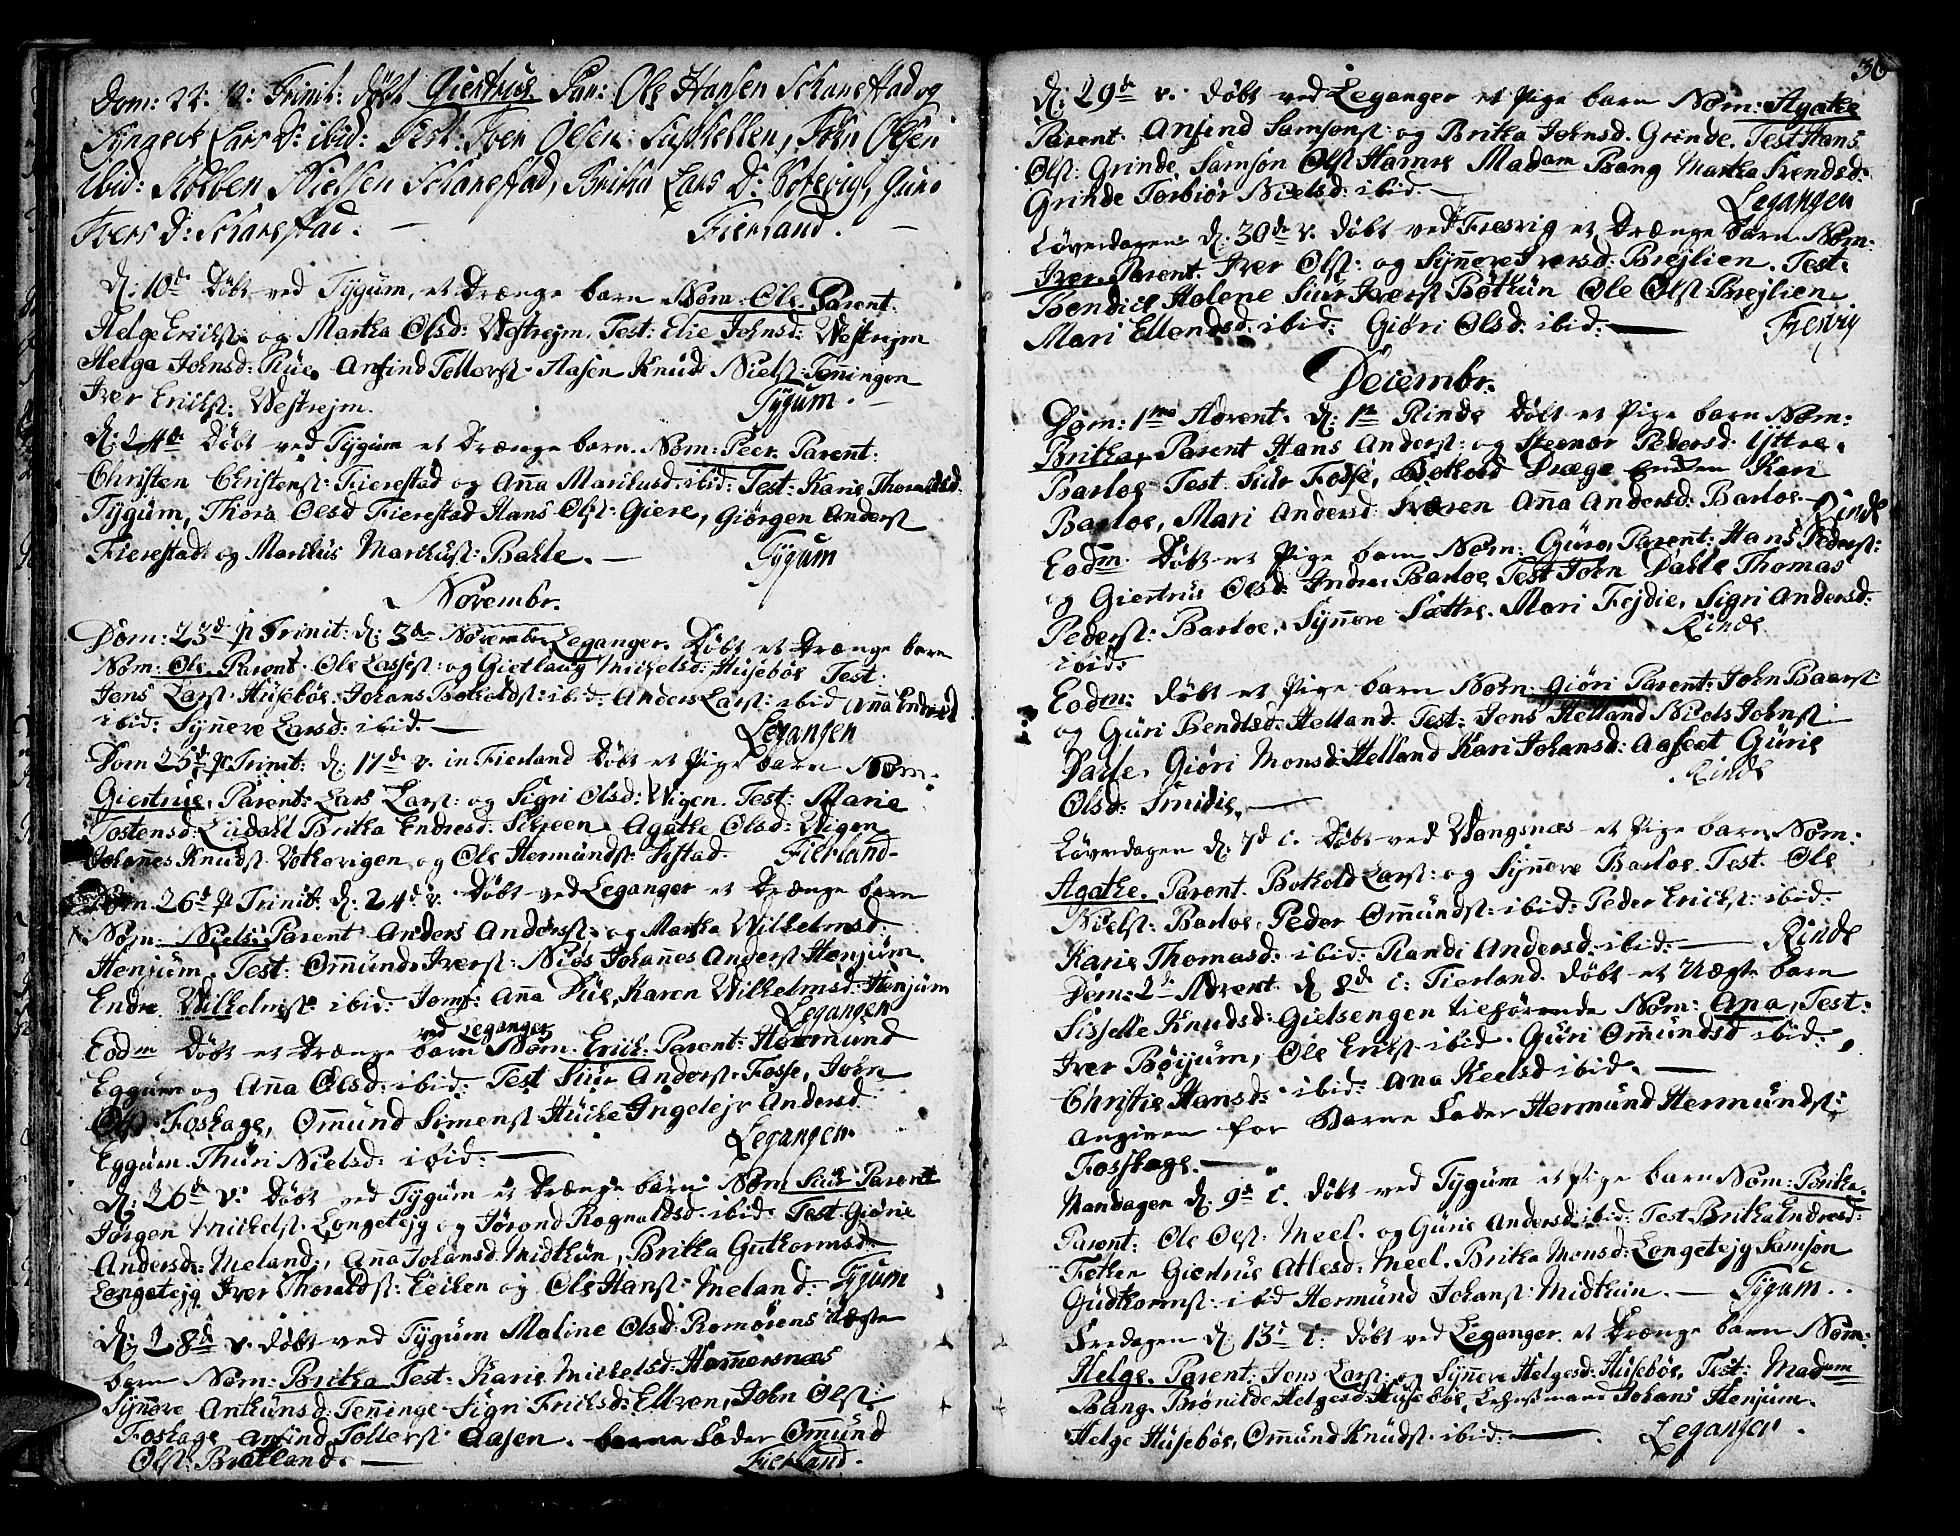 Dom: 22: p: Trinit: döbt Giertrue Par: Ole Hansen Scharestad og
Lars D: ibid: Test: Iver Olsen Suphellen, John Olsen
Ibid: Kolben Nielsen Scharestad, Britha Lars D: Boterig, Guro
Ivers D: Scharestad. — Fierland. —
D: 10de Döbt ved Tÿgum, et Drænge barn Nom: Ole. Parent:
Helge Erichs: og Martha Olsd: Westrejm, Test: Elie Johnsd: Westrejm
Helga Johnsd: Rüe, Anfind Tollefs: Aasen Knud Niels: Tenningen
Iver Erichs: Westrejm. Tÿgum. —
D: 24de Döbt ved Tÿgum et Drænge barn. Nom: Peer. Parent:
Christen Christens: Fierestad og Anna Marcusd: ibid: Test: Karie Thoraldsd:
Tÿgum, Thora Olsd Fierestad Hans Ols: Giere, Giörgen Anders:
Fierestad og Marcus Marchus: Bahle. — Tÿgum
Novembr.
Dom: 23de p Trinit: D: 3de Novembr Leganger. Döbt et Drænge barn
Nom: Ole. Parent. Ole Lasses: og Gietlaug Michelsd: Husebÿe Test:
Jens Lars: Husebÿe. Johans Botholds: ibid: Anders Lars: ibid Anna Endresd
ibid: Synnere Larsd: ibid: — Leganger
Dom 25de p Trinit: D: 17de v. in Fierland Döbt et Pige barn Nom:
Giertrue, Parent: Lars Lars: og Sigri Olsd: Wigen. Test: Marie
Tostensd: Lidahl Britha Endresd: Scheen Agathe Olsd: Wigen
Johannes Knuds: og Ole Hermunds: Sistad. Fierland.
Dom: 26de p Trinit: D: 24de v. Döbt ved Leganger et Drænge barn
Nom: Niels. Parent Anders Anders: og Martha Wilhelmsd:
Henjum, Test: Ommund Ivers: Niøs Johannes Anders: Henjum.
Endre Wilhelms: ibid: Jomf: Anna Rüe, Karen Wilhelmsd: Henjum
Leganger
ved Leganger
Eodm Döbt et Drænge barn Nom: Erich. Parent: Hermund
Eggum og Anna Olsd: ibid: Test Siur Anders: Fosse, John
Ols: Foshage, Ommund Simens: Huke Ingelejv Andersd
Eggum. Thuri Nielsd: ibid: — Leganger.
D: 26de v. Döbt ved Tÿgum et Drænge barn Nom Siur Parent
Jörgen Michels: Longetejg og Jörond Rognaldsd: ibid: Test Giörie
Andersd: Meland:, Anna Johansd: Midthun, Britha Guthormsd:
Longetejg Iver Thoralds: Eeiken og Ole Hans: Meland: Tÿgum
D: 28de v. Döbt ved Tÿgum Maline Olsd: Romörens Uægte
barn Nom: Britha Test: Karie Michelsd: Hommersnæs
Synnere Ankunsd: Tenninge Sigri Erichsd: Eltzen, John Ols:
Foshage Anfind Tollefs: Aasen. barne Fader Ommund
Ols: Bratland. — Fierland.
36
D: 29de v. Döbt ved Leganger et Pige barn Nom: Agathe
Parent. Anfind Samsons: og Britha Johnsd: Grinde. Test Hans
Ols: Grinde, Samson Ols: Hamre Madam Bang Martha Svendsd:
Grinde Torbiör Nielsd: ibid: — Leganger
Löverdagen D: 30de v. döbt ved Fresvig et Drænge barn Nom:
Iver. Parent. Iver Ols: og Synnere Iversd: Brejlien. Test:
Bendict Holene Siur Ivers: Böthun Ole Ols: Brejlien
Mari Ellendsd: ibid: Giöri Olsd: ibid: — Fresvig
Decembr.
Dom: 1me Advent: D: 1te Rinde Döbt et Pige barn Nom:
Britha, Parent Hans Anders: og Steenor Pedersd: Yttre
Barloe Test Siur Fosse, Bothold Dræge Endsen Kari
Barloe, Mari Andersd Anna Andersd: Barloe. Rinde
Eodm: Döbt et Pige barn Nom: Guro, Parent: Hans Peders:
og Giertrus Olsd: Indre Barloe, Test John Dahle Thomas
Peders: Barloe, Synnere Sættre, Mari Fejdie, Sigri Andersd:
ibid: Rinde
Eodm: döbt et Pige barn Nom: Giöri Parent: John Baars:
og Guri Bendtsd: Helland. Test: Jens Helland Niels Johns:
Dahle, Giöri Monsd: Helland Kari Johansd: Aafeet Gurie
Olsd: Smidie. — Rinde
Löverdagen D: 7d i. Döbt ved Wangsnæs et Pige barn Nom:
Agathe. Parent. Bothold Lars: og Synnere Barloe. Test: Ole
Niels: Barloe, Peder Ommunds: ibid: Peder Erichs: ibid:
Karie Thomasd: ibid: Randi Andersd: ibid: — Rinde
Dom: 2de Advent. D 8de i: Fierland. döbt et Uægte barn
Sisselle Knudsd: Gielsengen tilhörende Nom: Ana, Test:
Iver Böÿum, Ole Erichs: ibid. Guri Ommundsd ibid:
Christie Hansd: ibid: Ana Keelsd ibid. —
Angiven for Barne Fader Hermund Hermunds:
Fosshage. —
Mandagen D: 9de i. döbt ved Tÿgum et Pige barn Nom: Britha.
Parent: Ole Ols: Meel. og Gurie Andersd: ibid: Test Britha Endresd:
Giertrue Atlesd: Meel. Britha Monsd: Longetejg Samson
Gudthorms: ibid Hermund Johans: Midthun. — Tÿgum.
Fredagen D: 13de i: döbt ved Leganger et Drænge barn Nom:
Helge. Parent: Jens Lars: og Synnere Helgesd: Husebÿe, Test: Madam
Bang. Brönilde Helgesd: Husebÿe, Lehnsmand Johans Henjum.
Helge Husebÿe, Ommund Knuds: ibid: — Leganger.